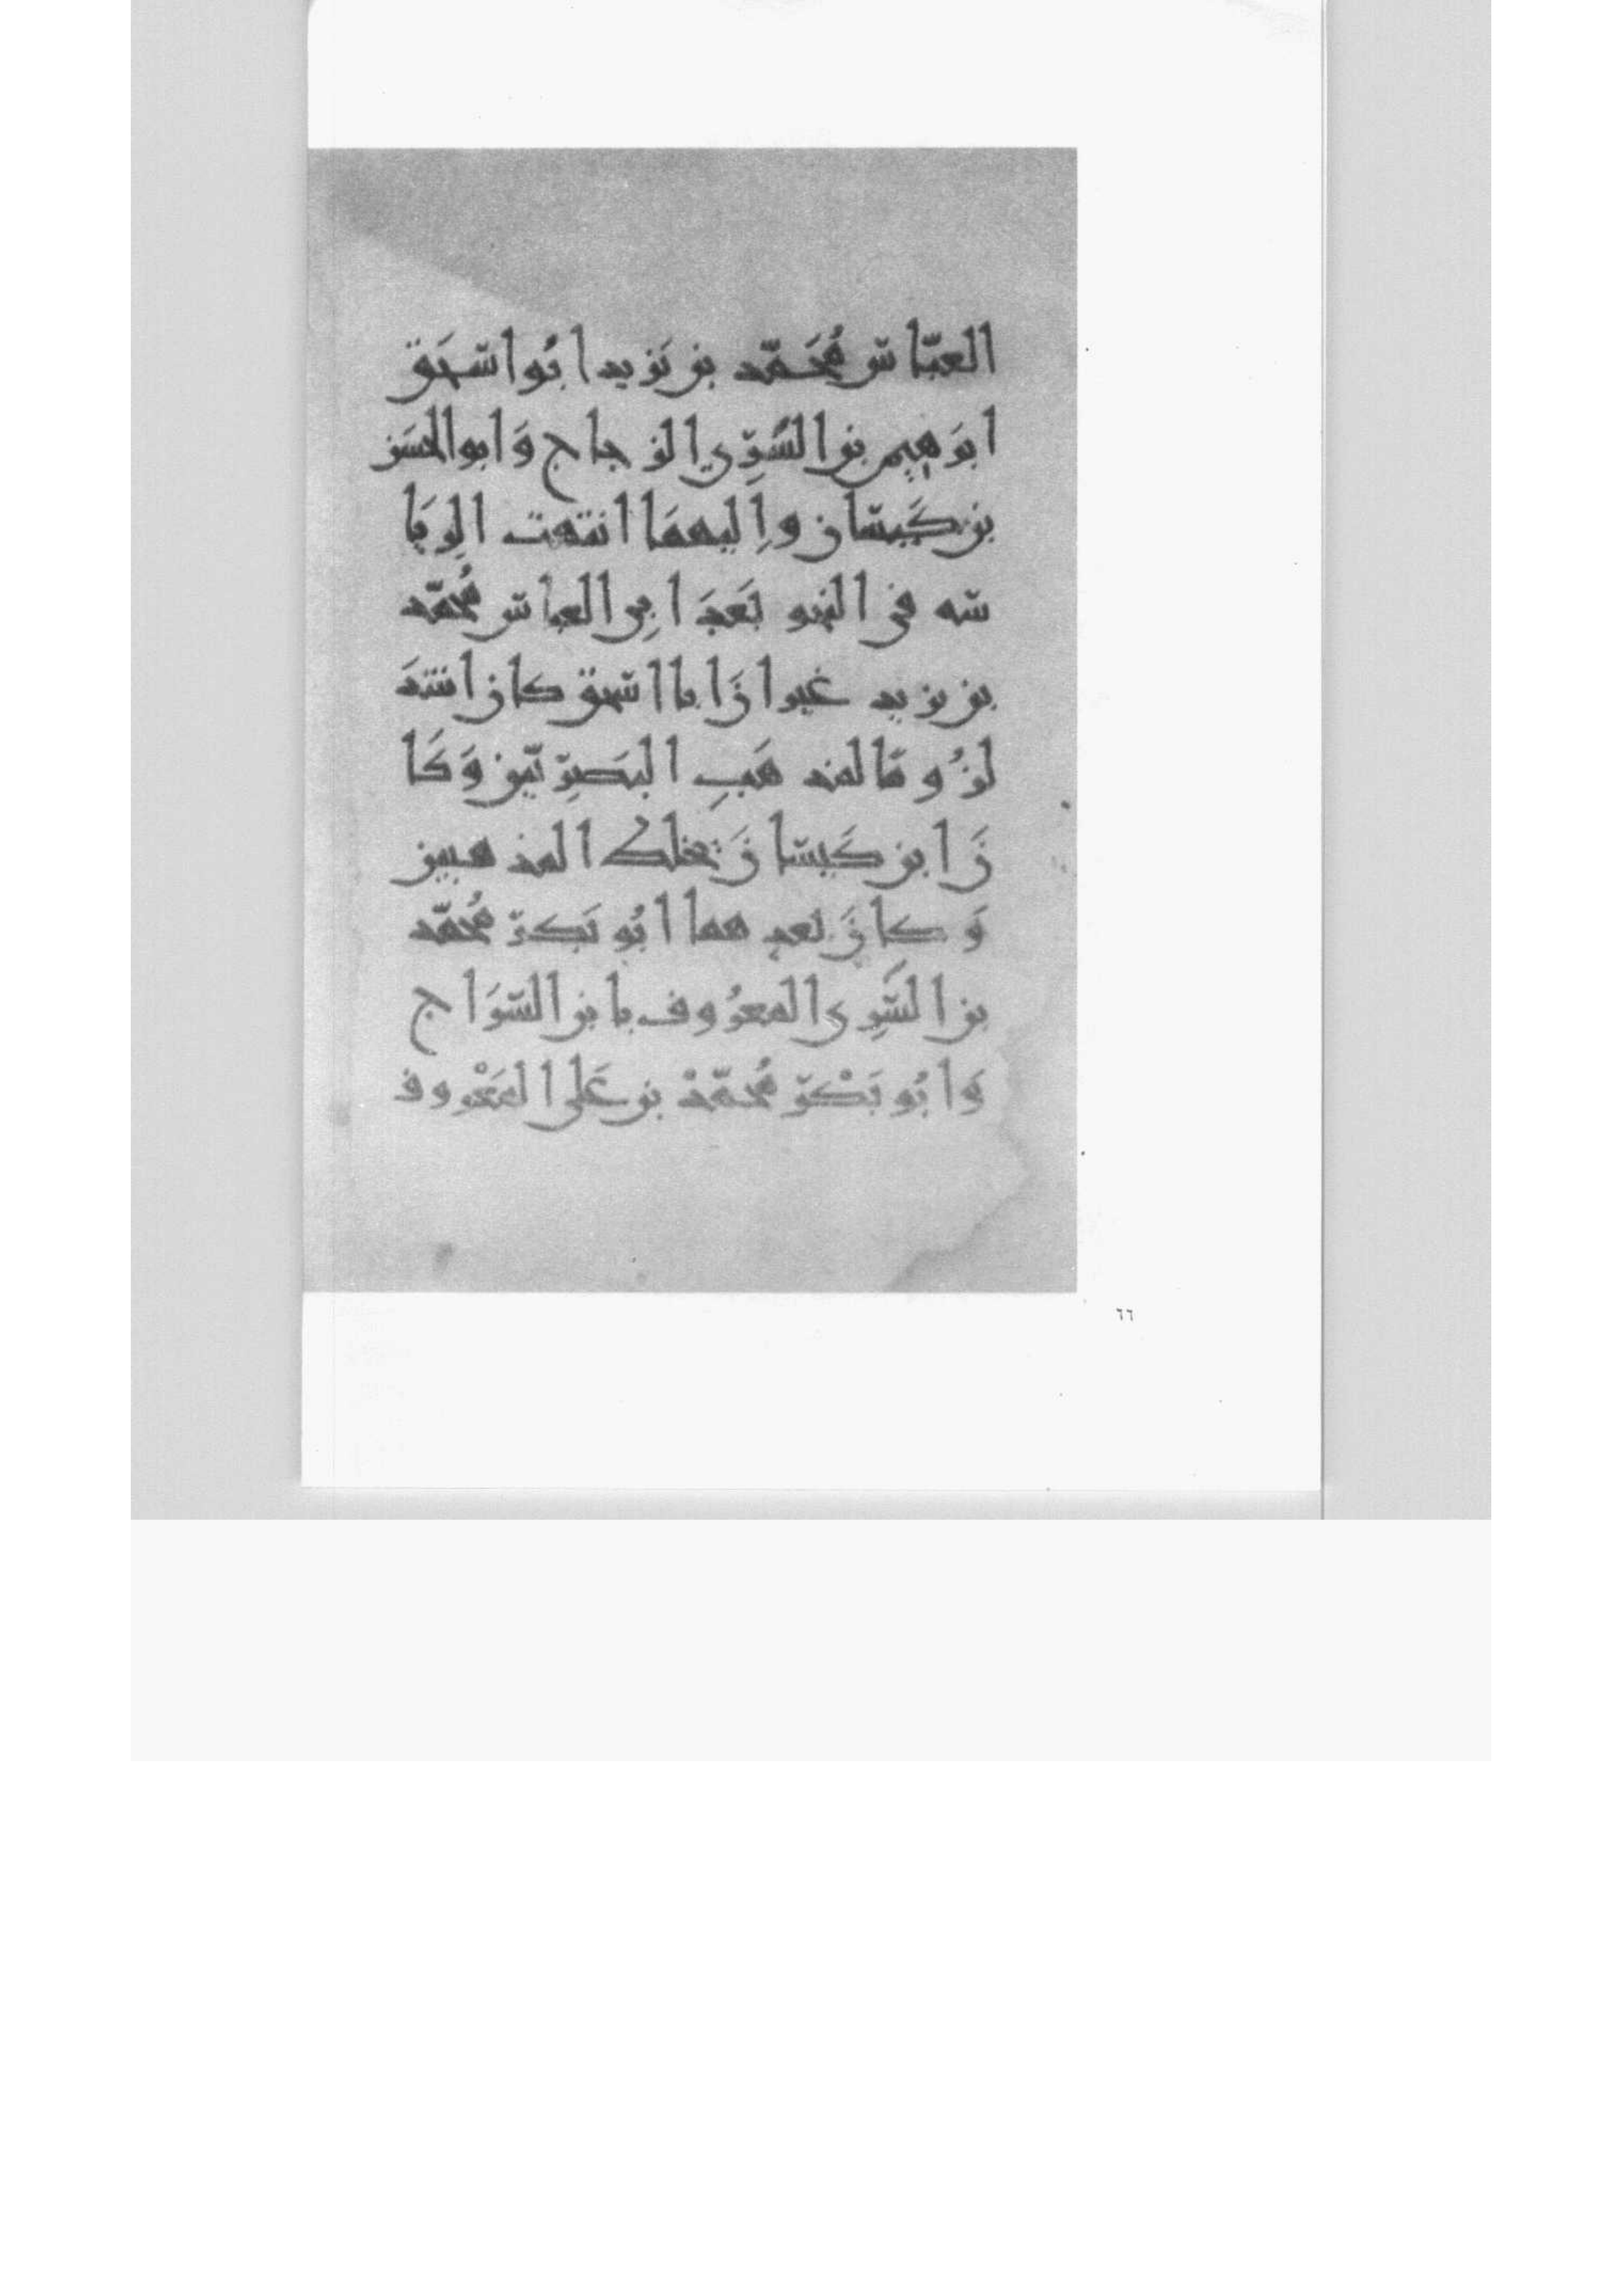 العبّاس مُحَمّد بن يَزيد ابُو اسحَق
ابرَهيم بن السَّرِّي الزجاج وَابو الحسَن
بن كَيسَان واِليهمَا انتهت الرِيَا
سه في النحو بَعدَ ابِي العباس مُحمّد
بن يزيد غير انَ ابا اسحق كان اشدَ
لزُوما لمذهَبِ البَصرِيّين وَكَا
نَ ابن كَيسَانَ يخلط المذهبين
وَكانَ بَعدهما ابُو بَكر مُحمّد
بن السَّرِي المعرُوف بابن السّرَاج
وَابُو بَكْر مُحمّد بن عَلي المعَرْوف
٦٦